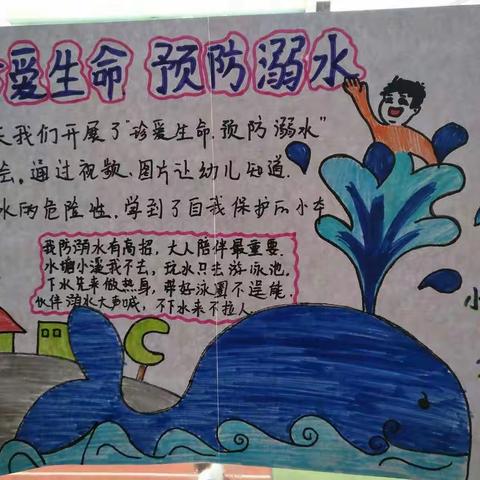 爱生命 预防溺水
天我们开展了“珍爱生命.预防溺水”
会,通过视频、图片让幼儿知道.
水的危险性,学到了自我保护的小本
我防溺水有高招,大人陪伴最重要.
水塘小溪我不去,玩水只去游泳池,
下水先来做热身,带好泳圈不逞能.
伙伴溺水大声喊,不下水来不拉人.
小